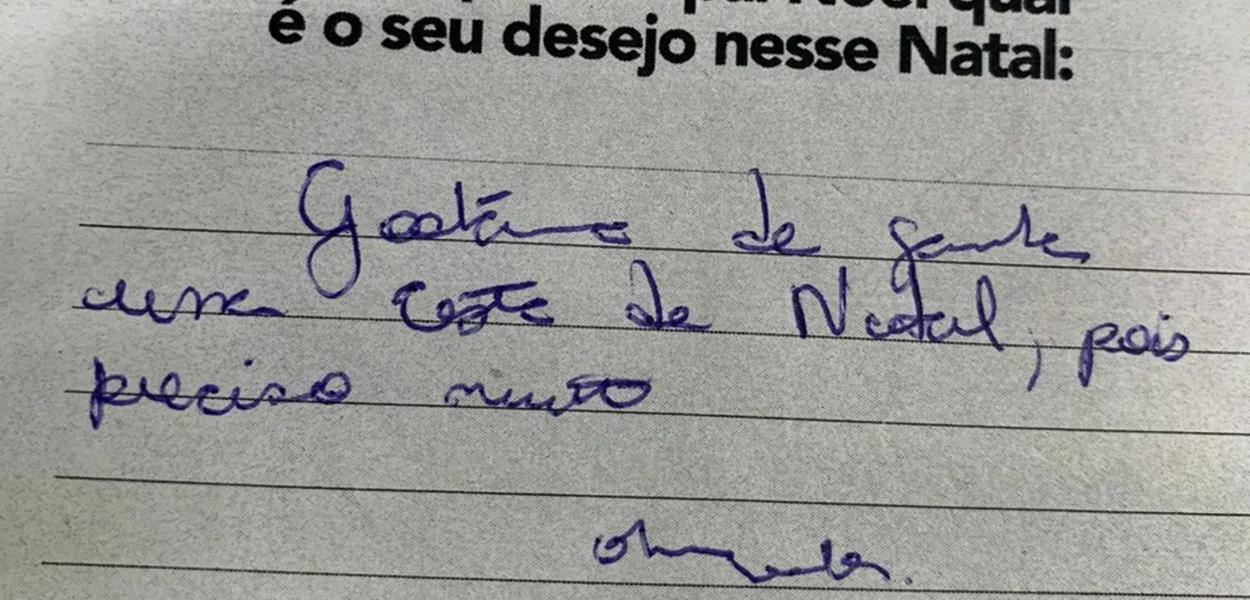 Noel qual
é o seu desejo nesse Natal:
Gostaria de ganhar
uma cesta de Natal, pois
preciso muito